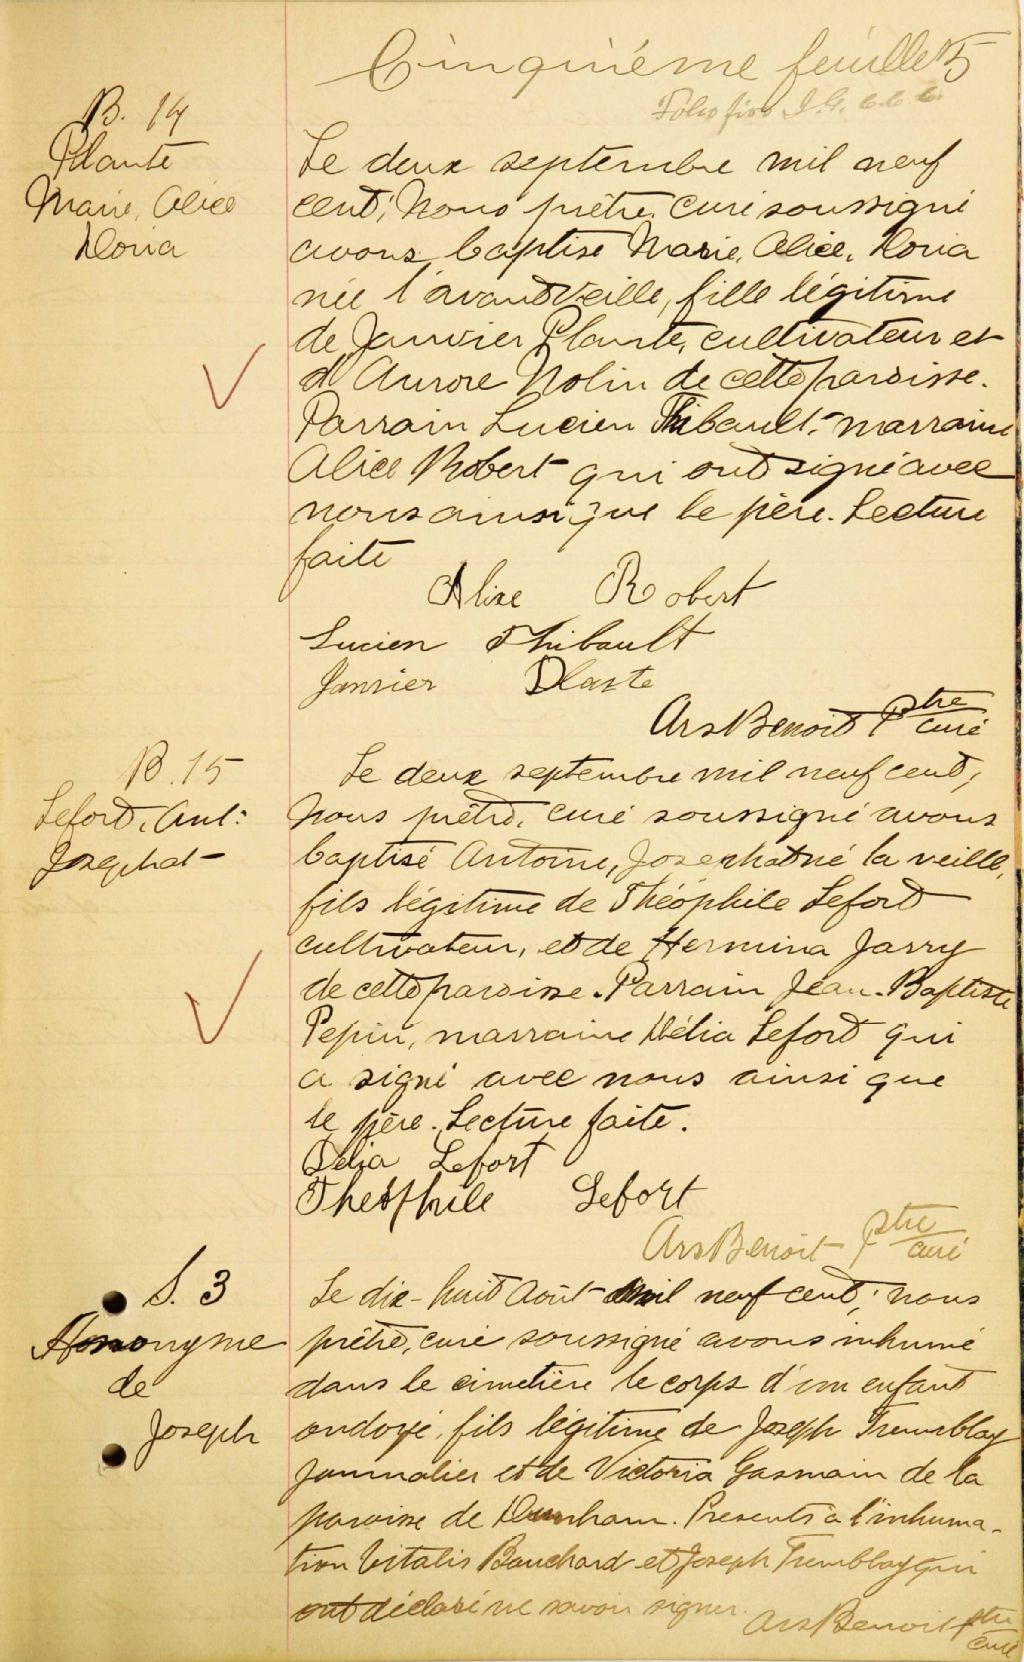 Cinquième feuillet 5
B. 14
Plante
Marie, Alice
Doria
Le deux septembre mil neuf
cent; Nous prêtre, curé soussigné
avons baptisé Marie, Alice, Doria
née l'avant veille, fille légitime
de Janvier Plante, cultivateur et
d'Aurore Nolin de cette paroisse.
Parrain Lucien Thibault, marraine
Alice Robert qui ont signé avec
nous ainsi que le père. Lecture
faite
Alixe Robert
Lucien Thibault
Janvier Plante
Ars Benoit Ptre
curé
B. 15
Lefort, Ant:
Josephat
Le deux septembre mil neuf cent,
Nous prêtre, curé soussigné avons
baptisé Antoine, Josephat né la veille,
fils légitime de Théophile Lefort
cultivateur, et de Hermina Jarry
de cette paroisse. Parrain Jean-Baptiste
Pepin, marraine Délia Lefort qui
a signé avec nous ainsi que
le père. Lecture faite.
Délia Lefort
Theophile Lefort
Ars Benoit Ptre
curé
S. 3
Anonyme
de
Joseph
Le dix-huit Août mil neuf cent; nous
prêtre, curé soussigné avons inhumé
dans le cimetière le corps d'un enfant
ondoyé, fils légitime de Joseph Tremblay
journalier et de Victoria Gasmain de la
paroisse de Dunham. Presents à l'inhuma-
tion Vitalis Bouchard et Joseph Tremblay qui
ont déclaré ne savoir signer.
Ars Benoit Ptre
curé